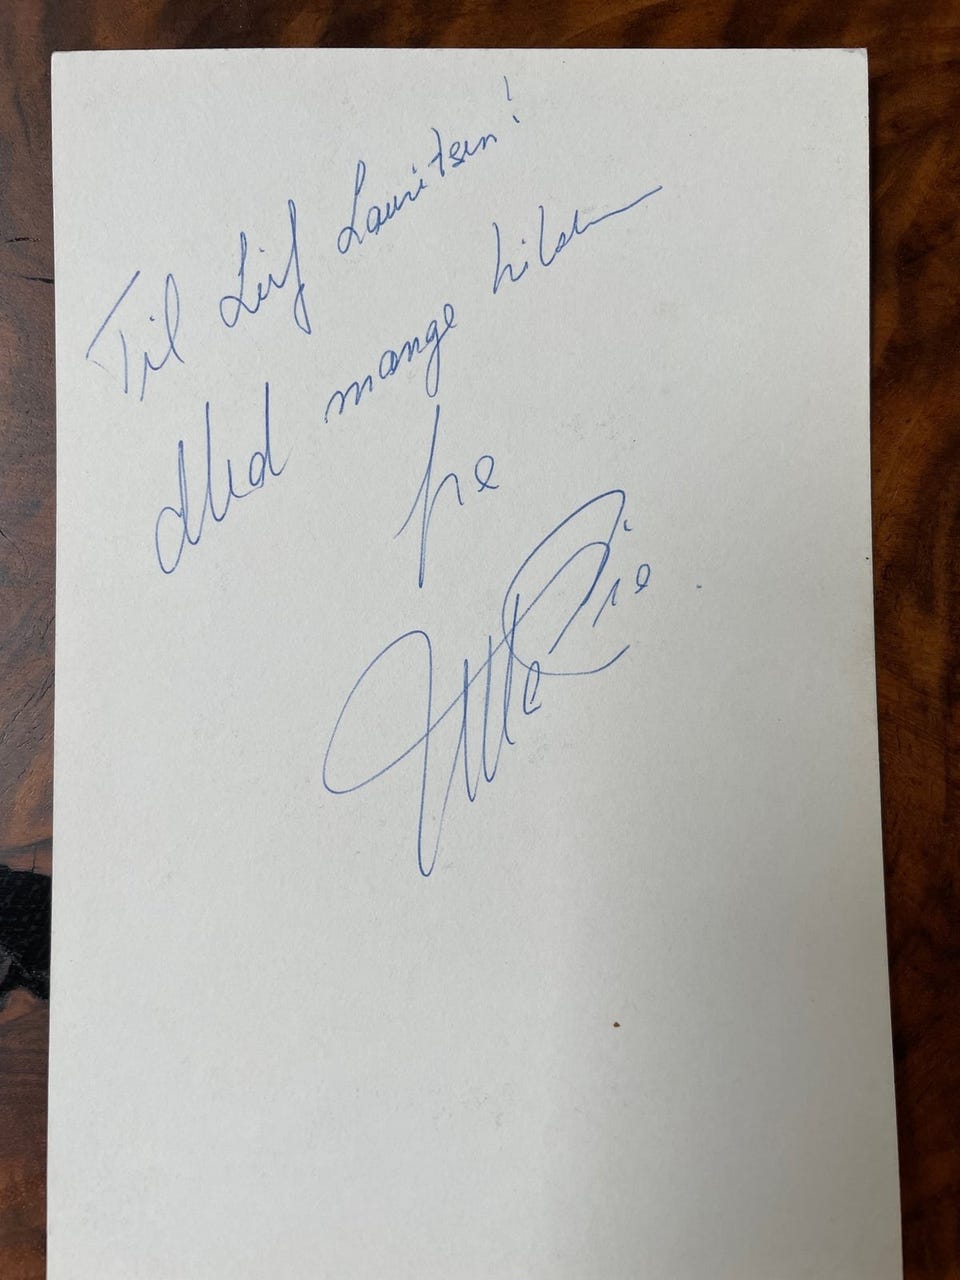 Til Leif Lauritsen!
Med mange hilsen
fra
Otto